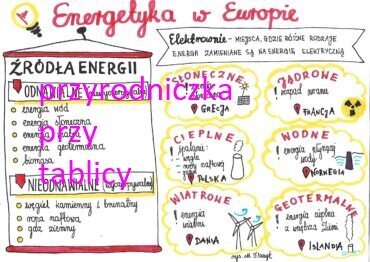 Energetyka w Europie
Elektrownie - MIEJSCA, GDZIE RÓŻNE RODZAJE
ENERGII ZAMIENIANE SĄ NA ENERGIĘ ELEKTRYCZNĄ
ŹRÓDŁA ENERGII
ODNAWIALNE
energia wód
energia słoneczna
energia wiatru
energia geotermalna
biomasa
NIEODNAWIALNE
węgiel kamienny i brunatny
ropa naftowa
gaz ziemny
przyrodniczka
przy
tablicy
SŁONECZNE
GRECJA
JĄDROWE
rozpad uranu
FRANCJA
CIEPLNE
spalanie:
- węgla
- ropy naftowej
- gazu
POLSKA
WODNE
energia płynącej
wody
NORWEGIA
WIATROWE
energia
wiatru
DANIA
GEOTERMALNE
energia cieplna
z wnętrza Ziemi
ISLANDIA